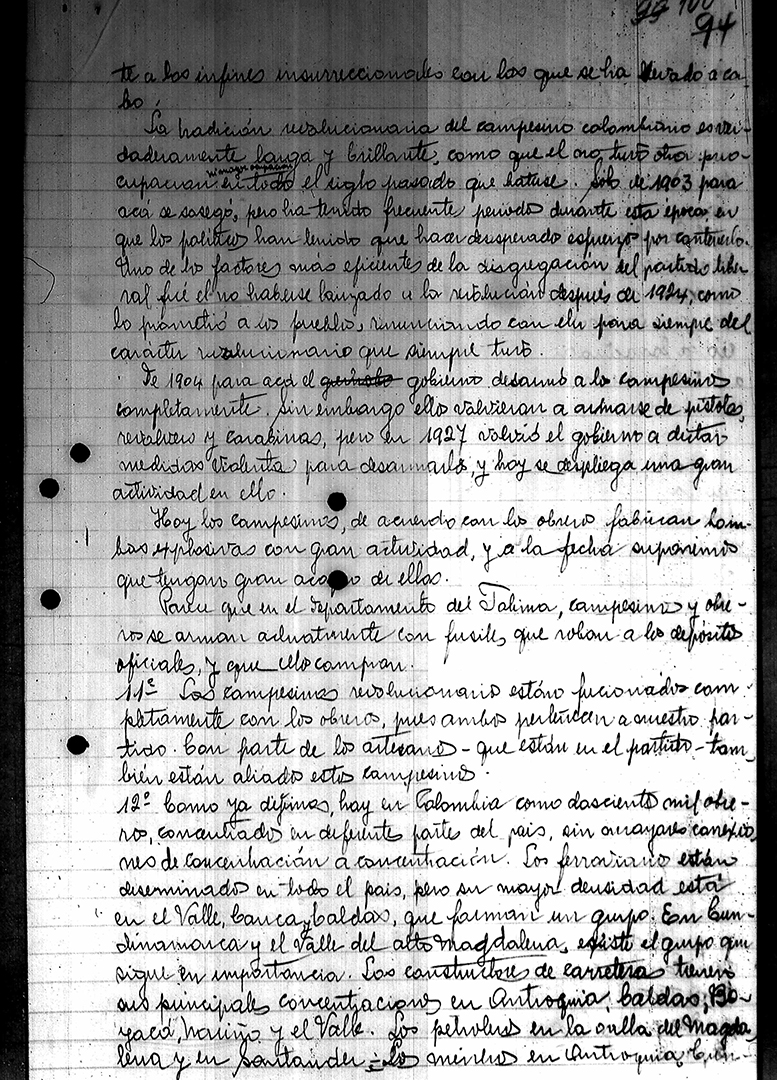 94
te a los infines insurreccionales con los que se ha llevado a ca-
bo.
La tradición revolucionaria del campesino colombiano es ver-
daderamente larga y brillante, como que el no tuvo otra preo-
cupación en todo el siglo pasado que batirse. Solo de 1903 para
acá se sosegó, pero ha tenido frecuente periodos durante esta época en
que los politicos han tenido que hacer desesperado esfuerzo por contenerlo.
Uno de los factores más eficientes de la disgregación del partido libe-
ral fué el no haberse lanzado a la revolución después de 1924, como
lo prometió a los pueblos, renunciando con ello para siempre del
carácter revolucionario que siempre tuvo.
De 1904 para acá el gobierno desarmó a lo campesinos
completamente. Sin embargo ellos volvieron a armarse de pistolas,
revolvers y carabinas, pero en 1927 volvió el gobierno a dictar
medidas violentas para desarmarlos, y hoy se despliega una gran
actividad en ello.
Hoy los campesinos, de acuerdo con los obreros fabrican bom-
bas explosivas con gran actividad, y a la fecha suponemos
que tengan gran acopio de ellas.
Parece que en el departamento del Tolima, campesinos y obre-
ros se arman actualmente con fusiles que roban a los depósitos
oficiales, y que ellos compran.
11º Los campesinos revolucionarios están fucionados com-
pletamente con los obreros, pues ambos pertenecen a nuestro par-
tido. Con parte de los artesanos - que están en el partido - tam-
bién están aliados estos campesinos.
12º Como ya dijimos, hay en Colombia como doscientos mil obre-
ros, concentrados en diferente partes del pais, sin mayores conexio-
nes de concentración a concentración. Los ferroviarios están
diseminados en todo el pais, pero su mayor densidad está
en el Valle, Cauca y Caldas, que forman un grupo. En Cun-
dinamarca y el Valle del alto Magdalena, existe el grupo que
sigue en importancia. Los constructores de carreteras tienen
sus principales concentraciones en Antioquia, Caldas, Bo-
yacá, Nariño y el Valle. Los petroleros en la orilla del Magda-
lena y en Santander. Los mineros en Antioquia, Cun-